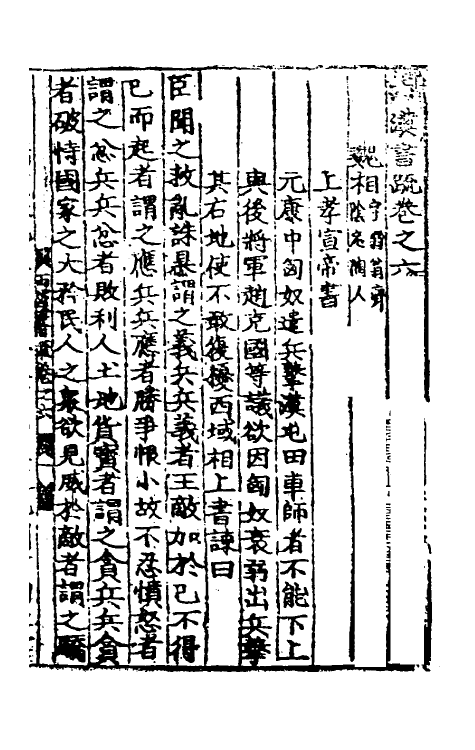 漢書疏卷之六
魏相字弱翁齊陰定陶人
上孝宣帝書
元康中匈奴遣兵擊漢屯田車師者不能下上
與後將軍趙充國等議欲因匈奴衰弱出兵擊
其右地使不敢復擾西域相上書諫曰
臣聞之救亂誅暴謂之義兵兵義者王敵加於己不得
已而起者謂之應兵兵應者勝爭恨小故不忍憤怒者
謂之忿兵兵忿者敗利人土地貨寶者謂之貪兵兵貪
者破恃國家之大矜民人之衆欲見威於敵者謂之驕